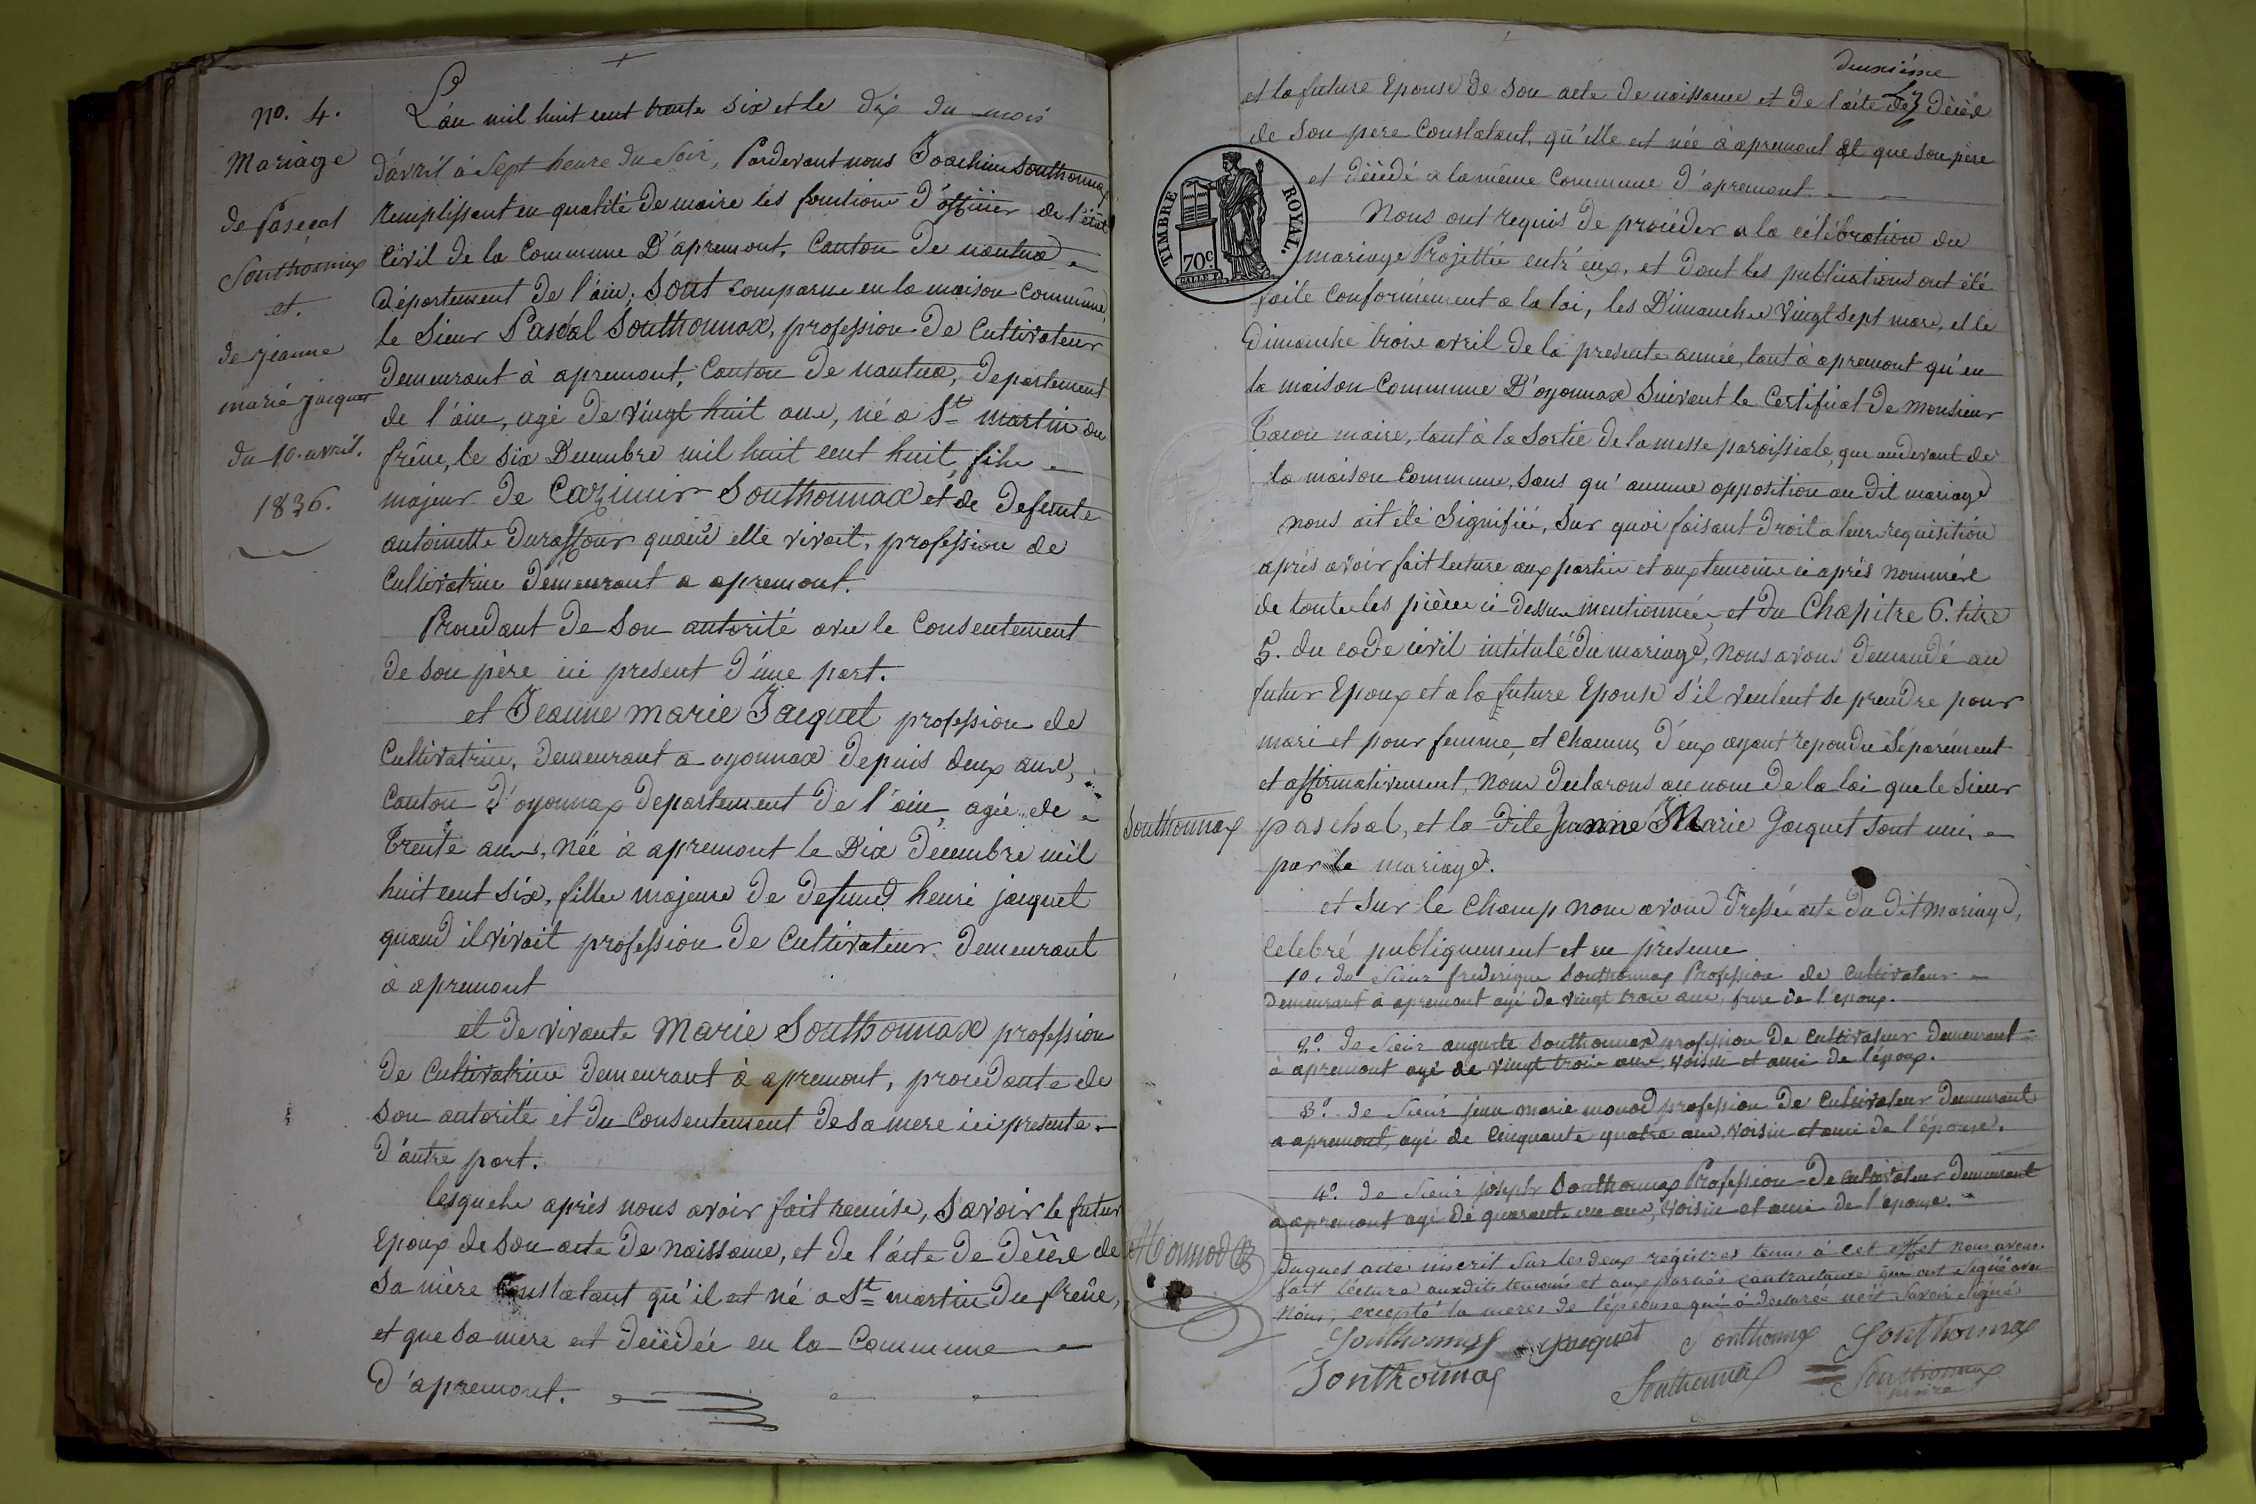 no. 4.
Mariage
de Pascal
Southonnax
et.
de jeanne
marie jacquet
du 10. avril.
1836.
L'an mil huit cent trente six et le dix du mois
d'avril à Sept heure du Soir, Pardevant nous Joachim Southonnax
remplissant en qualité de maire les fonction d'officier de l'état
Civil de la Commune D'apremont, Canton de nantua
Département de l'ain, Sont comparue en la maison Commune,
le Sieur Pascal Southonnax, profession de Cultivateur
demeurant à apremont, Canton de nantua, departement
de l'ain, agé de vingt huit ans, né a St martin du
frêne, le six Decembre mil huit cent huit, fils
majeur de Cazimir Southonnax et de defunte
antoinette Duraffour quand elle vivoit, profession de
Cultivatrice demeurant a apremont.
Procedant de Son autorité avec le Consentement
de son père ici present d'une part.
et Jeanne marie Jacquet profession de
Cultivatrice, demeurant a oyonnax depuis deux ans,
Canton d'oyonnax departement de l'ain, agée de
Trente ans, née à apremont le Dix decembre mil
huit cent six, fille majeure de defund henri jacquet
quand il vivait profession de Cultivateur demeurant
à apremont
et de vivante Marie Southonnax profession
de Cultivatrice demeurant à apremont, procedante de
son autorité et du Consentement de sa mere ici presente
d'autre part.
lesquels après nous avoir fait remise, Savoir le futur
Epoux de son acte de naissance, et de l'acte de décès de
sa mère Constatant qu'il est né a St martin du frêne,
et que sa mere est décédée en la Commune
d'apremont.
deuxième
et la future Epouse de son acte de naissance et de l'acte de décès
de son pere Constatant, qu'elle est née à apremont et que son père
est décédé a la même Commune d'apremont.
TIMBRE ROYAL.
70c
Nous ont requis de procéder a la célébration du
mariage Projettée entr'eux, et dont les publications ont été
faite Conformément a la loi, les Dimanche vingt sept mars, et le
Dimanche trois avril de la presente année, tant à apremont qu'en
la maison Commune D'oyonnax Suivant le Certificat de Monsieur
maire, tant à la Sortie de la messe paroissiale, que audevant de
la maison Commune, sans qu'aucune opposition au dit mariage
nous ait été Signifiée, Sur quoi faisant droit a leur requisition
après avoir fait lecture aux partie et aux temoins ci après nommés
de toute les pièces ci dessus mentionnées et du Chapitre 6. titre
5. du code civil intitulé du mariage, nous avons demandé au
futur Epoux et a la future Epouse s'il veulent se prendre pour
mari et pour femme, et chacun, d'eux ayant repondu Séparément
et affirmativement, nous declarons au nom de la loi que le Sieur
Southonnax paschal, et la dite Jeanne Marie Jacquet sont unis
par le mariage.
et sur le champ nous avons dressée acte du dit mariage,
celebré publiquement et en présence
1o. du Sieur frederique Southonnax Profession de Cultivateur
demeurant à apremont agé de vingt trois ans, frere de l'epoux.
2o. de Sieur auguste Southonnax profession de Cultivateur demeurant
à apremont agé de vingt trois ans voisin et ami de l'époux.
3o. de Sieur jean marie monod profession de Cultivateur demeurant
a apremont, agé de Cinquante quatre ans, voisin et ami de l'épouse.
4o. de Sieur joseph Southonnax Profession de Cultivateur demeurant
a apremont agé de quarante un ans, voisin et ami de l'epouse.
Duquel acte inscrit sur les deux régistres tenus à cet effet nous avons
fait lecture auxdits temoins et aux parties contractante qui ont signé avec
nous, excepté la mere de l'épouse qui a declaré ne savoir signé
Monnod
Southonnax jacquet Southonnax Southonnax
Southonnax Southonnax Southonnax
maire